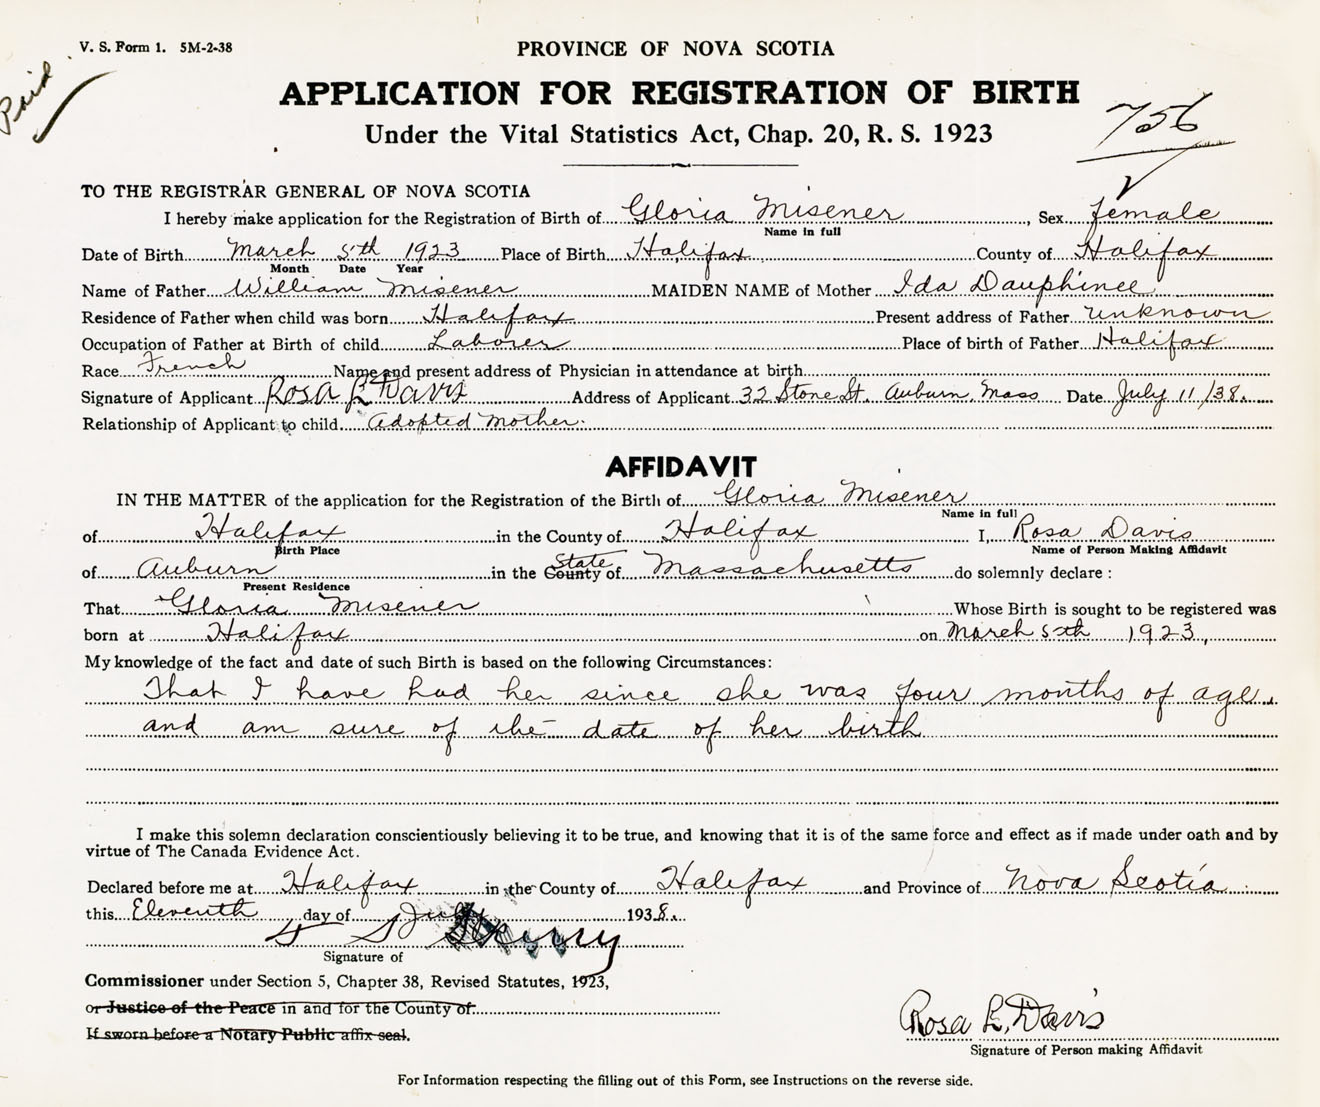 V. S. Form 1. 5M-2-38
PROVINCE OF NOVA SCOTIA
Paid
APPLICATION FOR REGISTRATION OF BIRTH
756
Under the Vital Statistics Act, Chap. 20, R. S. 1923
TO THE REGISTRAR GENERAL OF NOVA SCOTIA
I hereby make application for the Registration of Birth of Gloria Misener, Sex female
Name in full
Date of Birth March 5th 1923 Place of Birth Halifax County of Halifax
Month Date Year
Name of Father William Misener MAIDEN NAME of Mother Ida Dauphinee
Residence of Father when child was born Halifax Present address of Father unknown
Occupation of Father at Birth of child Laborer Place of birth of Father Halifax
Race French Name and present address of Physician in attendance at birth
Signature of Applicant Rosa L Davis Address of Applicant 32 Stone St. Auburn, Mass Date July 11/38.
Relationship of Applicant to child Adopted Mother.
AFFIDAVIT
IN THE MATTER of the application for the Registration of the Birth of Gloria Misener
Name in full
of Halifax in the County of Halifax I, Rosa Davis
Birth Place Name of Person Making Affidavit
State
of Auburn in the County of Massachusetts do solemnly declare:
Present Residence
That Gloria Misener Whose Birth is sought to be registered was
born at Halifax on March 5th 1923,
My knowledge of the fact and date of such Birth is based on the following Circumstances:
That I have had her since she was four months of age.
and am sure of the date of her birth
I make this solemn declaration conscientiously believing it to be true, and knowing that it is of the same force and effect as if made under oath and by
virtue of The Canada Evidence Act.
Declared before me at Halifax in the County of Halifax and Province of Nova Scotia
this Eleventh day of July 1938.
Signature of
Commissioner under Section 5, Chapter 38, Revised Statutes, 1923,
or Justice of the Peace in and for the County of
If sworn before a Notary Public affix seal.
Rosa L. Davis
Signature of Person making Affidavit
For Information respecting the filling out of this Form, see Instructions on the reverse side.